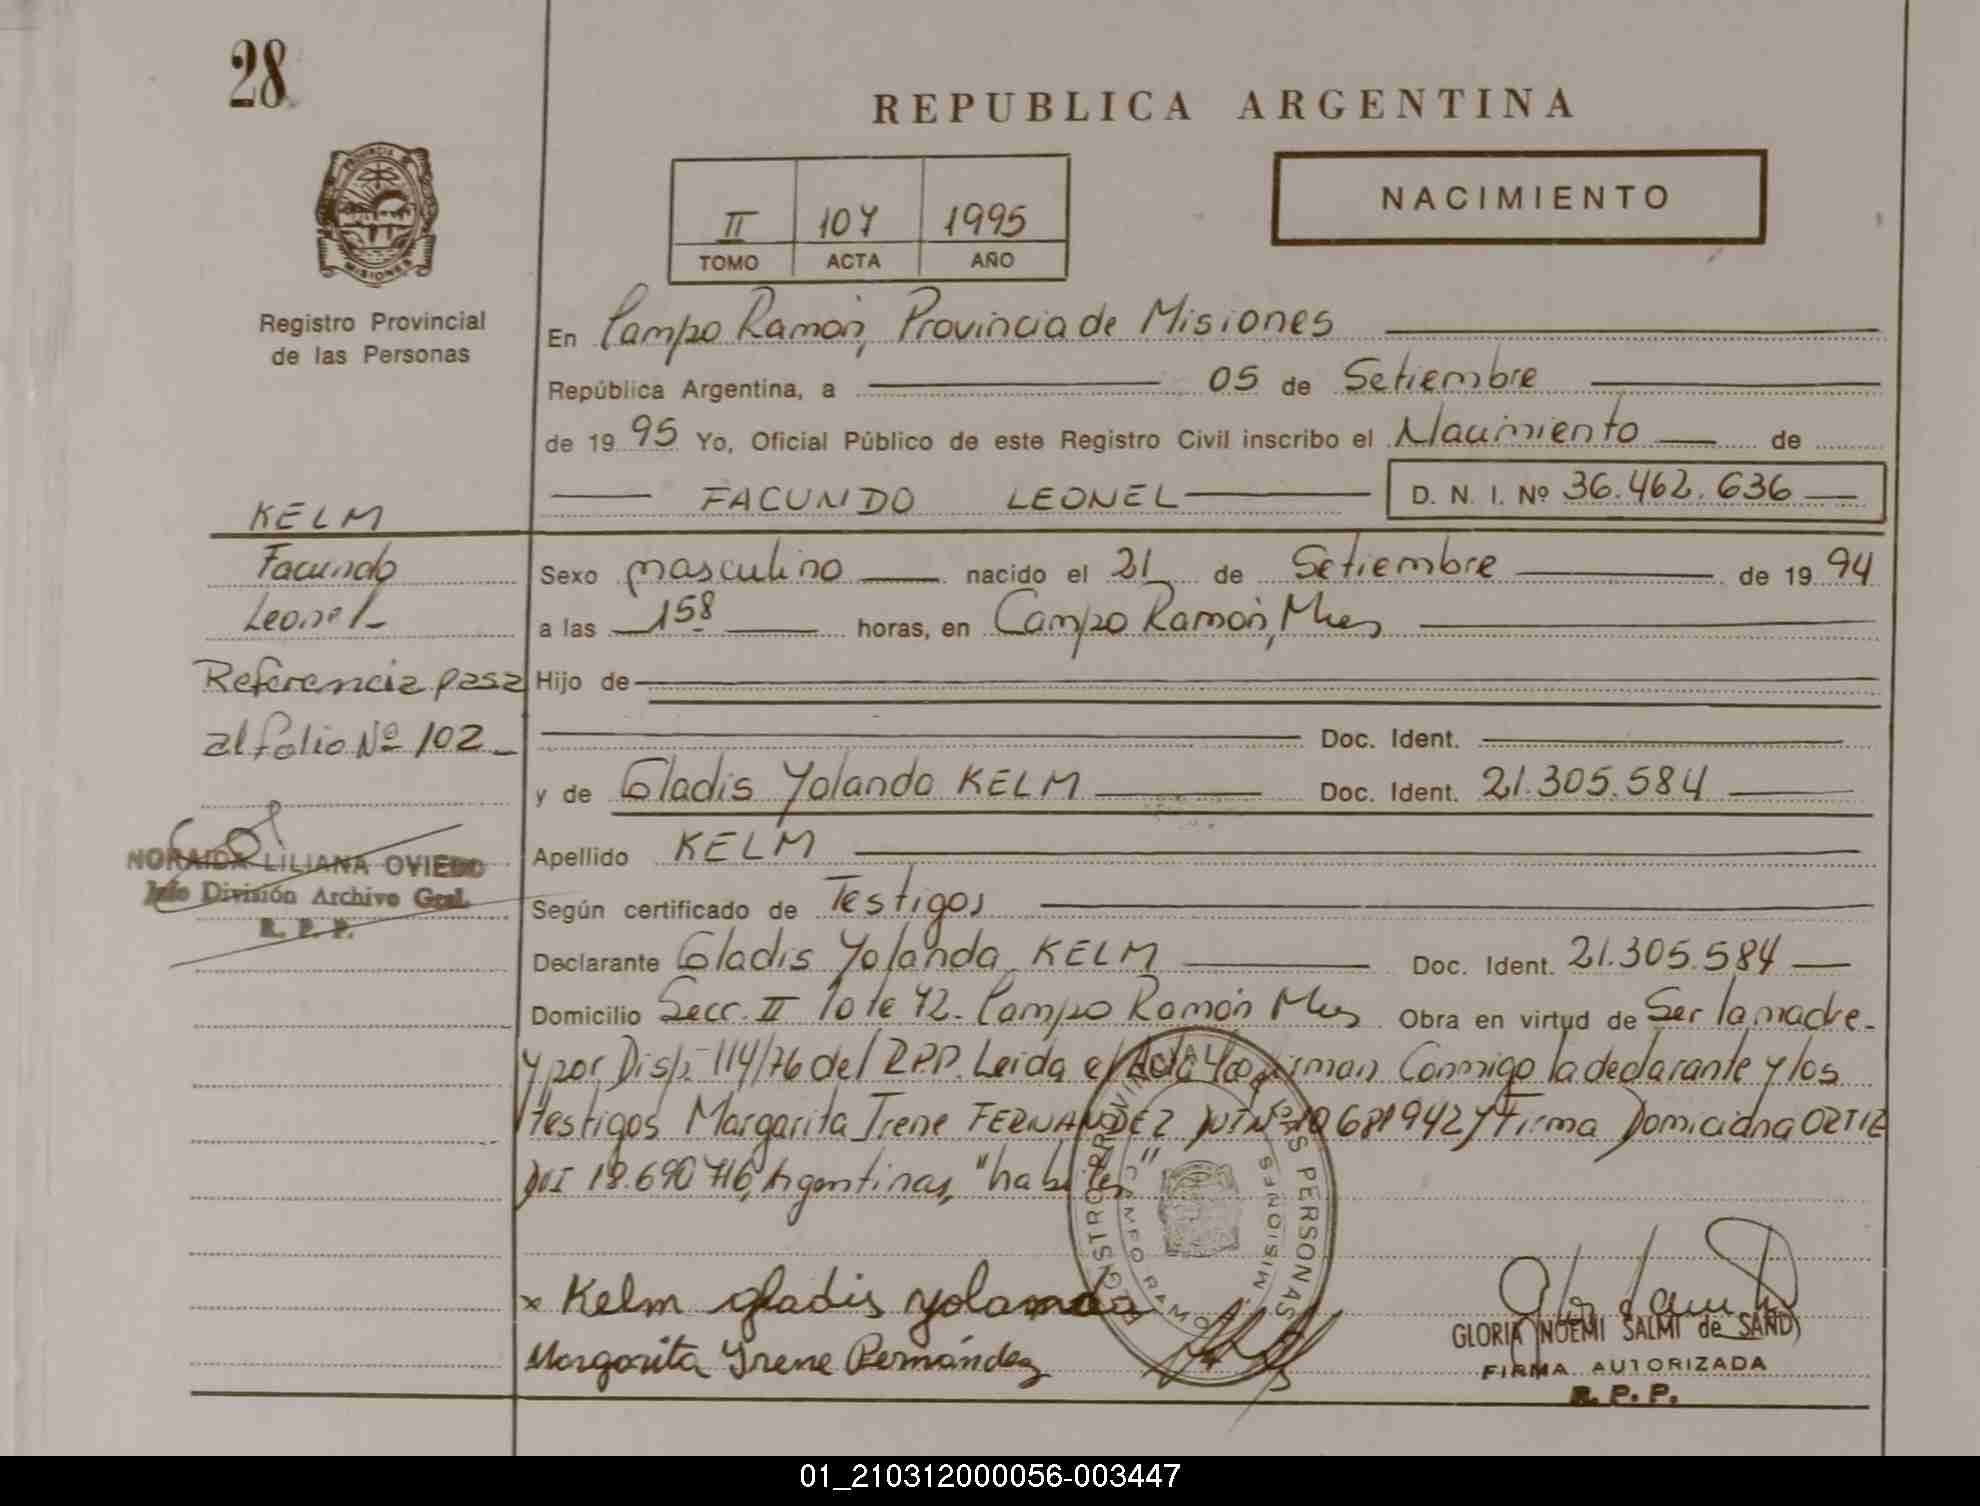 28
REPUBLICA ARGENTINA
PROVINCIA DE MISIONES
NACIMIENTO
II 107 1995
TOMO ACTA AÑO
Registro Provincial
de las Personas
En Campo Ramón, Provincia de Misiones
República Argentina, a 05 de Setiembre
de 1995 Yo, Oficial Público de este Registro Civil inscribo el Nacimiento de
FACUNDO LEONEL D. N. I. Nº 36.462.636
KELM
Facundo
Leonel
Referencia pasa
al folio Nº 102
NORAIDA LILIANA OVIEDO
Jefe División Archivo Gral.
R. P. P.
Sexo masculino nacido el 21 de Setiembre de 1994
a las 158 horas, en Campo Ramón, Mnes
Hijo de
Doc. Ident.
y de Gladis Yolanda KELM Doc. Ident. 21.305.584
Apellido KELM
Según certificado de Testigos
Declarante Gladis Yolanda KELM Doc. Ident. 21.305.584
Domicilio Secc. II lote 72. Campo Ramón Mnes Obra en virtud de Ser la madre.
y por Disp. 114/76 del R.P.P. Leida el Acta firman Conmigo la declarante y los
testigos Margarita Irene FERNANDEZ DNI Nº 10681942 y Firma Domiciana ORTIZ
DNI 18.690.716, Argentinas, "habiles"
REGISTRO PROVINCIAL DE LAS PERSONAS
CAMPO RAMON MISIONES
x Kelm gladis yolanda
Margarita Irene Fernández
GLORIA NOEMI SALMI de SAND
FIRMA AUTORIZADA
R. P. P.
01_210312000056-003447